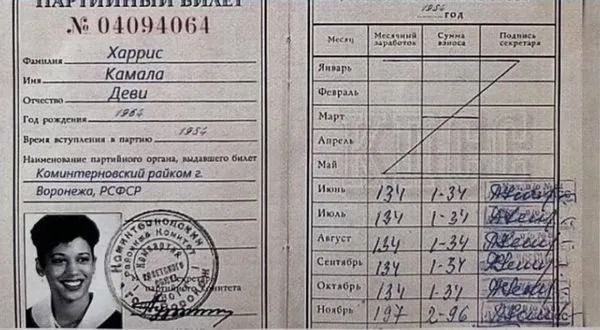 ПАРТИЙНЫЙ БИЛЕТ
№ 04094064
Фамилия Харрис
Имя Камала
Отчество Деви
Год рождения 1964
Время вступления в партию 1954
Наименование партийного органа, выдавшего билет
Коминтерновский райком г.
Воронежа, РСФСР
секретарь
партийного комитета
1954 ГОД
Месяц Месячный заработок Сумма взноса Подпись секретаря
Январь
Февраль
Март
Апрель
Май
Июнь 134 1-34
Июль 134 1-34
Август 134 1-34
Сентябрь 134 1-34
Октябрь 134 1-34
Ноябрь 197 2-96